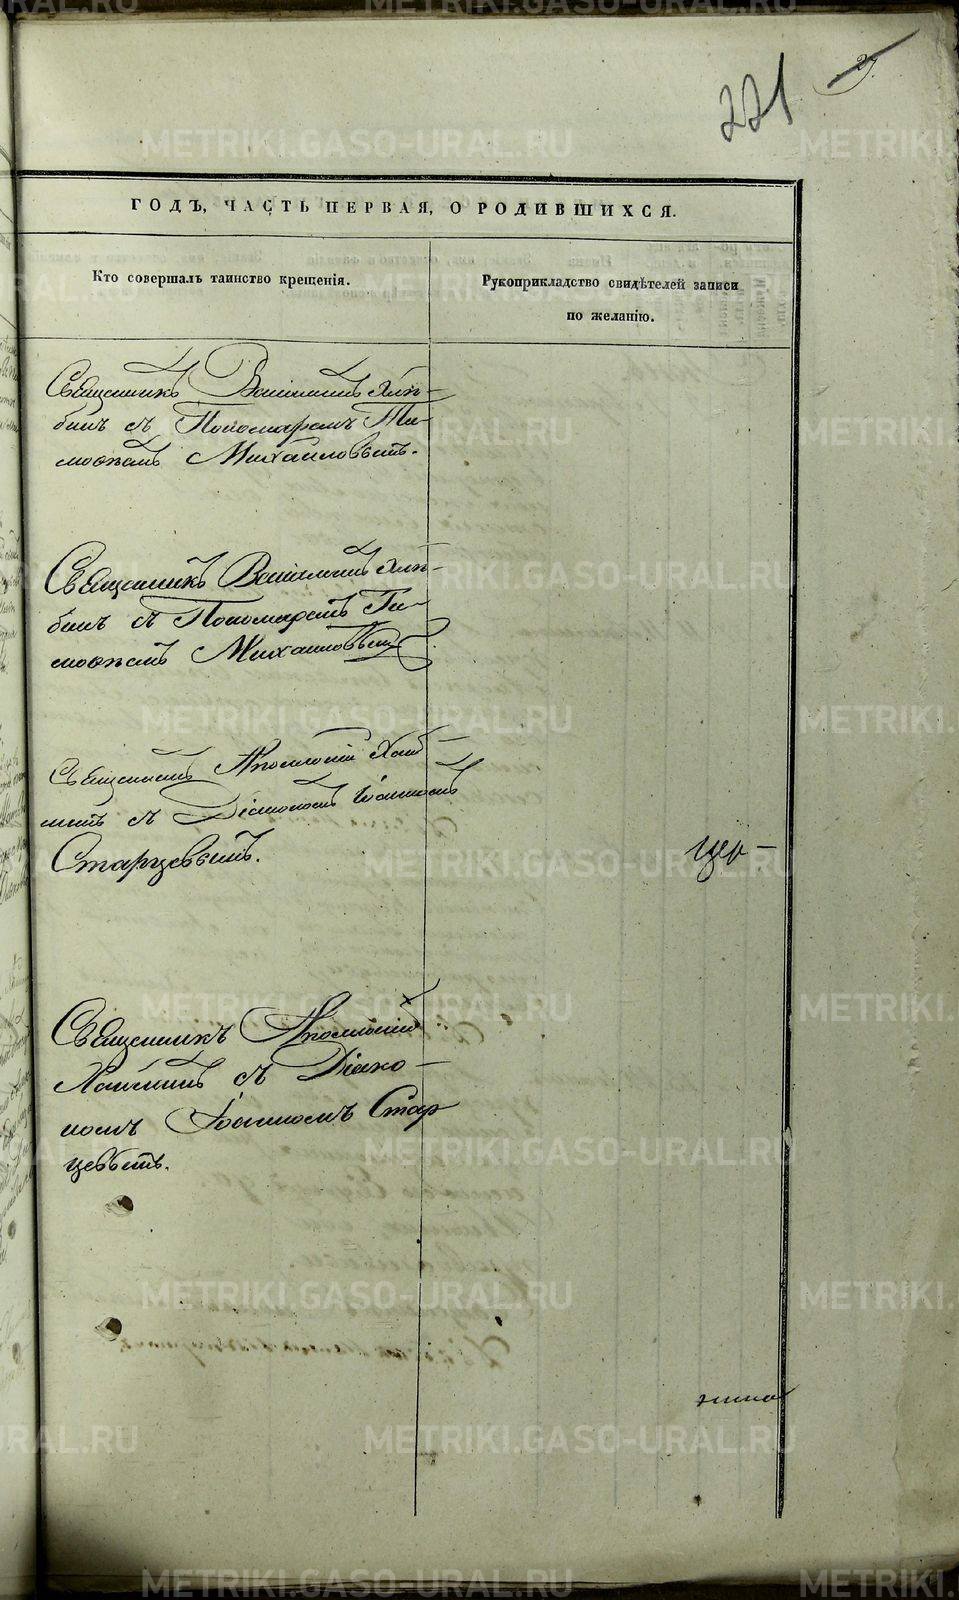 221
27.
ГОДЪ, ЧАСТЬ ПЕРВАЯ, О РОДИВШИХСЯ.
Кто совершалъ таинство крещенія.
Рукоприкладство свидѣтелей записи
по желанію.
Священникъ Веніаминъ Хлѣ-
бинъ съ Пономаремъ Ти-
моѳеемъ Михайловымъ.
Священникъ Веніаминъ Хлѣ-
бинъ съ Пономаремъ Ти-
моѳеемъ Михайловымъ.
Священникъ Аполлоній
съ Діакономъ Іоанномъ
Старцевымъ.
Цер-
Священникъ Аполлоній
съ Діако-
номъ Іоанномъ Стар
цевымъ.
METRIKI.GASO-URAL.RU